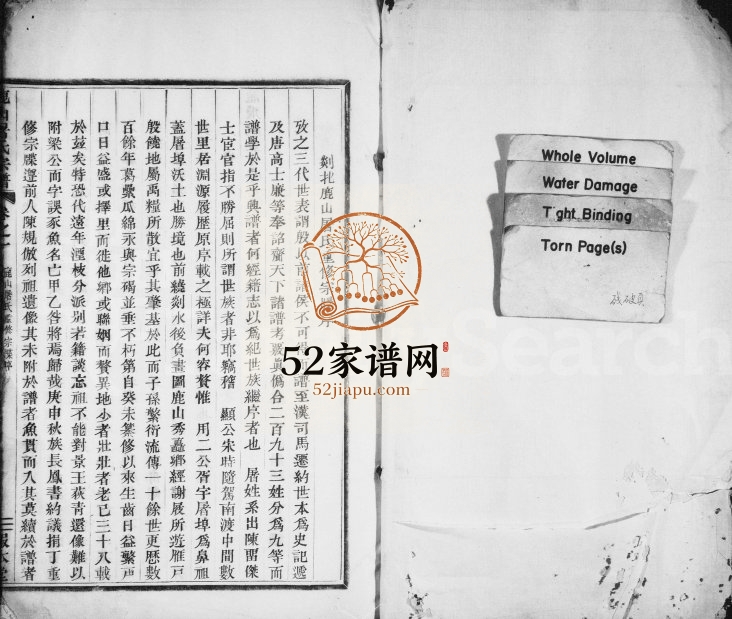 剡北鹿山屠氏重修宗譜序
攷之三代世表謂殷以前諸侯不可得而譜至漢司馬遷約世本爲史記遞
及唐高士廉等奉詔齋天下諸譜考眞僞合二百九十三姓分爲九等而
譜學於是乎興譜者何經籍志以爲紀世族繼序者也 屠姓系出陳留傑
士宦官指不勝屈則所謂世族者非耶竊稽 顯公宋時隨駕南渡中間數
世里居淵源履歷原序載之極詳夫何容贅惟 用二公胥宇屠埠爲鼻祖
蓋屠埠沃土也勝境也前繞剡水後負畫圖鹿山秀矗鄉經謝屐所遊雁戸
般饒地屬禹糧所散宜乎其肇基於此而子孫繁衍流傳一十餘世更歷數
百餘年葛藟瓜綿汞與宗碣並垂不朽第自癸未纂修以來生齒日益繁戸
口日益盛或擇里而徙他鄉或聯姻而贅異地少者壯壯者老已三十八載
於兹矣特恐代遠年湮枝分派別若籍談忘祖不能對景王荻青還像難以
附梁公而字誤豕魚名亡甲乙咎將焉歸哉庚申秋族長鳳書約議捐丁重
修宗牒遵前人陳規倣列祖遺像其未附於譜者魚貫而入其莫續於譜者
鹿山屠氏宗譜
卷之一
鹿山屠氏重修宗譜序
報本堂
Whole Volume
Water Damage
Tight Binding
Torn Page(s)
残破頁
52家谱网
52jiapu.com